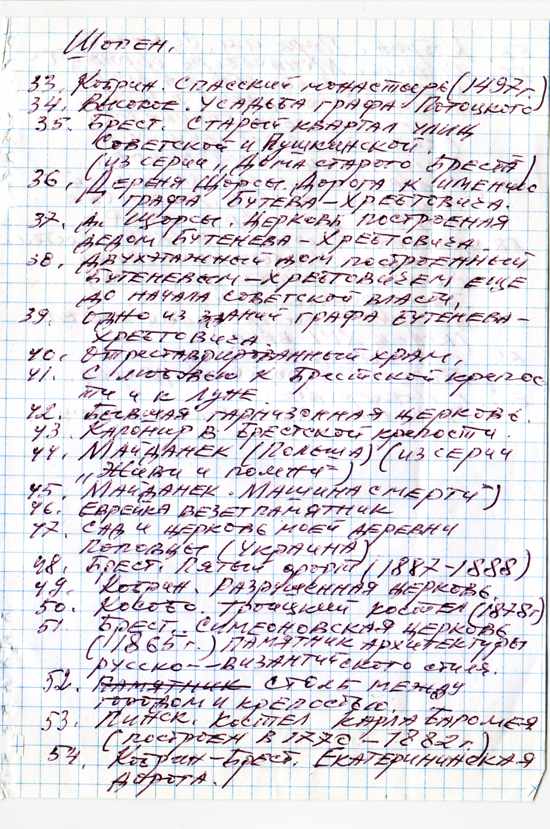 Шопен.
33. Кобрин. Спасский монастырь (1497г.)
34. Высокое. Усадьба графа Потоцкого
35. Брест. Старый квартал улиц
Советской и Пушкинской.
(из серии „Дома старого Бреста)
36. Деревня Щорсы. Дорога к имению
графа Бутева-Хрептовича.
37. д. Щорсы. Церковь построеная
дедом Бутенева-Хрептовича.
38. Двухэтажный дом построенный
Бутеневым-Хрептовичем еще
до начала советской власти,
39. Одно из зданий графа Бутенева-
Хрептовича.
40. Отреставрированный храм,
41. С любовью к Брестской крепос
ти и к Луне.
42. Бывшая гарнизонная церковь.
43. Капонир в Брестской крепости.
44. Майданек (Польша) (из серии
„Живи и помни")
45. Майданек. Машина смерти")
46. Еврейка везет памятник
47. Сад и церковь моей деревни
Поповцы (Украина)
48. Брест. Пятый форт (1887-1888)
49. Кобрин. Разрушенная церковь.
50. Троицкий костел (1878г)
51. Брест. Симеоновская церковь
(1865г.) Памятник архитектуры
русско--византийского стиля.
52. Памятник столб между
городом и крепостью.
53. Пинск. Костел Карла Баромея
(построен в 1770-1882г.)
54. Кобрин-Брест. Екатерининская
дорога.